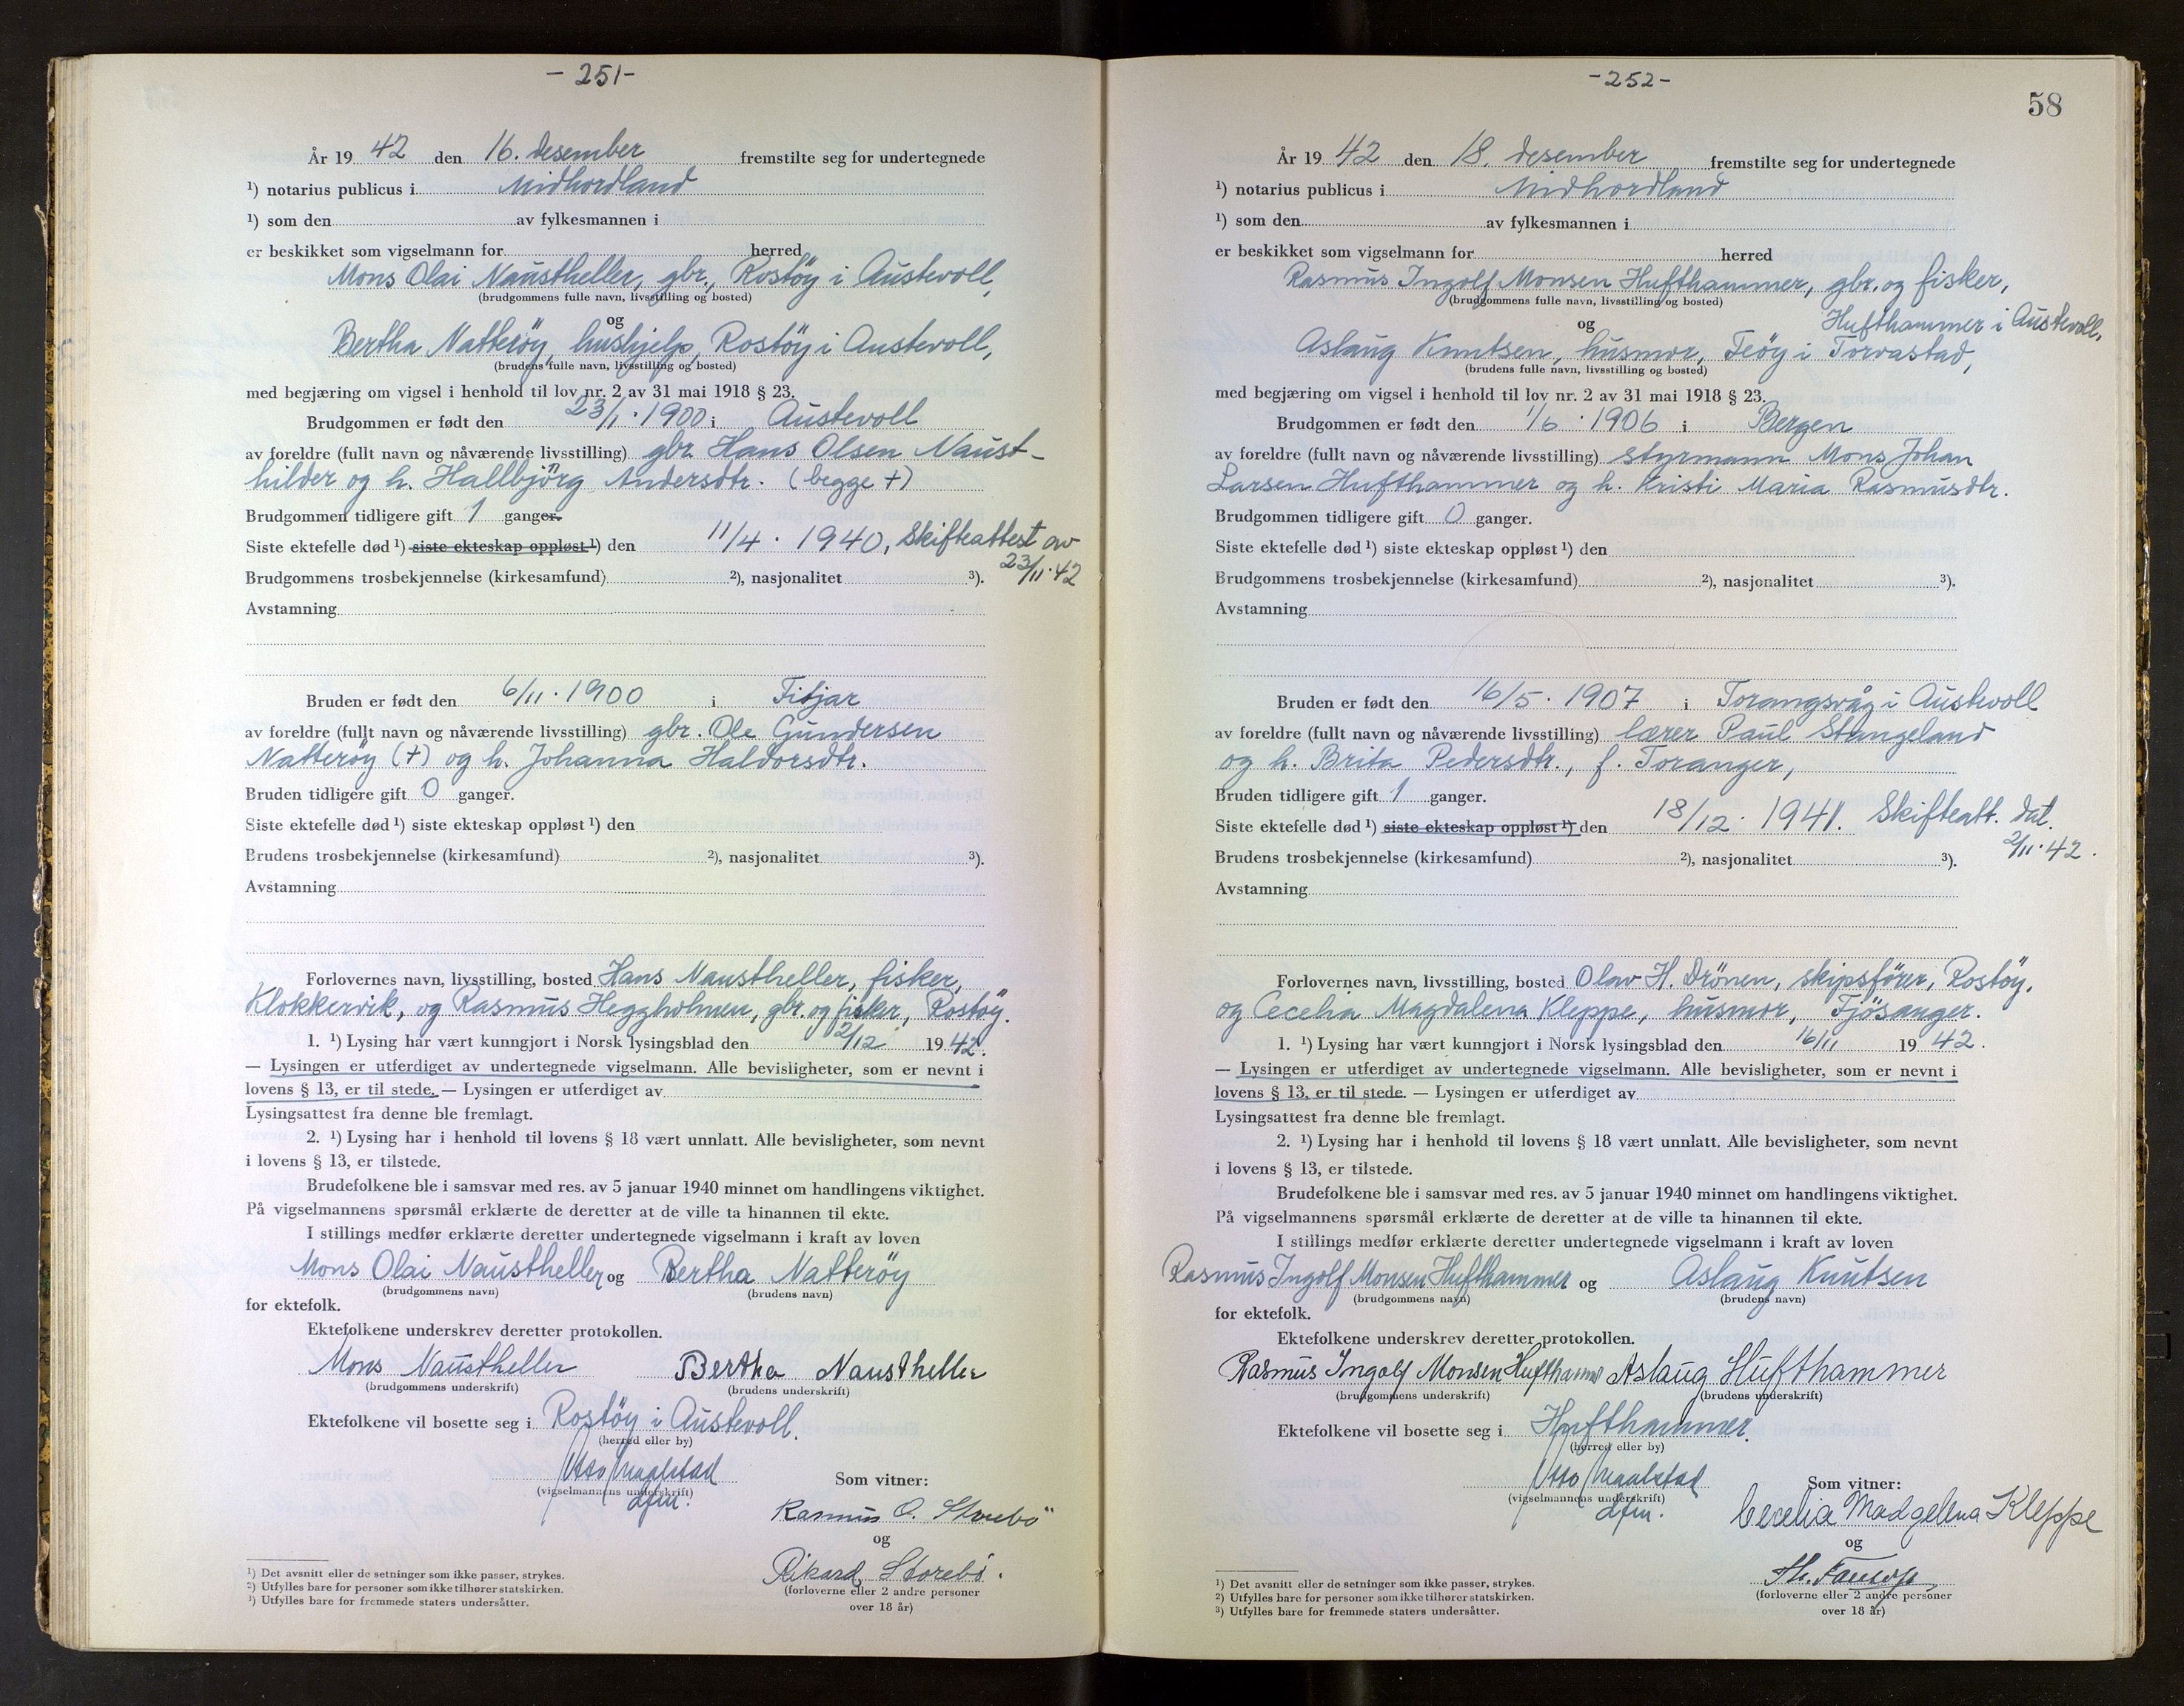 - 251 -
År 19 42 den 16. desember fremstilte seg for undertegnede
¹) notarius publicus i Midhordland
¹) som den av fylkesmannen i
er beskikket som vigselmann for herred
Mons Olai Naustheller, gbr., Rostöy i Austevoll,
(brudgommens fulle navn, livsstilling og bosted)
og
Bertha Natteröy, hushjelp, Rostöy i Austevoll,
(brudens fulle navn, livsstilling og bosted)
med begjæring om vigsel i henhold til lov nr. 2 av 31 mai 1918 § 23.
Brudgommen er født den 23/1. 1900 i Austevoll
av foreldre (fullt navn og nåværende livsstilling) gbr. Hans Olsen Naust-
hilder og h. Hallbjörg Andersdtr. (begge +)
Brudgommen tidligere gift 1 ganger.
Siste ektefelle død ¹) siste ekteskap oppløst ¹) den 11/4. 1940, Skifteattest av
23/11.42
Brudgommens trosbekjennelse (kirkesamfund) ²), nasjonalitet ³).
Avstamning
Bruden er født den 6/11. 1900 i Fitjar
av foreldre (fullt navn og nåværende livsstilling) gbr. Ole Gundersen
Natteröy (+) og h. Johanna Haldorsdtr.
Bruden tidligere gift 0 ganger.
Siste ektefelle død ¹) siste ekteskap oppløst ¹) den
Brudens trosbekjennelse (kirkesamfund) ²), nasjonalitet ³).
Avstamning
Forlovernes navn, livsstilling, bosted Hans Naustheller, fisker,
Klokkervik, og Rasmus Heggholmen, gbr. og fisker, Rostöy.
1. ¹) Lysing har vært kunngjort i Norsk lysingsblad den 2/12 19 42.
— Lysingen er utferdiget av undertegnede vigselmann. Alle bevisligheter, som er nevnt i
lovens § 13, er til stede. — Lysingen er utferdiget av
Lysingsattest fra denne ble fremlagt.
2. ¹) Lysing har i henhold til lovens § 18 vært unnlatt. Alle bevisligheter, som nevnt
i lovens § 13, er tilstede.
Brudefolkene ble i samsvar med res. av 5 januar 1940 minnet om handlingens viktighet.
På vigselmannens spørsmål erklærte de deretter at de ville ta hinannen til ekte.
I stillings medfør erklærte deretter undertegnede vigselmann i kraft av loven
Mons Olai Naustheller og Bertha Natteröy
(brudgommens navn) (brudens navn)
for ektefolk.
Ektefolkene underskrev deretter protokollen.
Mons Naustheller Bertha Naustheller
(brudgommens underskrift) (brudens underskrift)
Ektefolkene vil bosette seg i Rostöy i Austevoll.
(herred eller by)
Otto Maalstad
(vigselmannens underskrift)
dfm.
Som vitner:
Rasmus O. Storebö
og
Rikard Storebö.
(forloverne eller 2 andre personer
over 18 år)
¹) Det avsnitt eller de setninger som ikke passer, strykes.
²) Utfylles bare for personer som ikke tilhører statskirken.
³) Utfylles bare for fremmede staters undersåtter.
- 252 -
58
År 19 42 den 18. desember fremstilte seg for undertegnede
¹) notarius publicus i Midhordland
¹) som den av fylkesmannen i
er beskikket som vigselmann for herred
Rasmus Ingolf Monsen Hufthammer, gbr. og fisker,
(brudgommens fulle navn, livsstilling og bosted)
og Hufthammer i Austevoll,
Aslaug Knutsen, husmor, Feöy i Torvastad,
(brudens fulle navn, livsstilling og bosted)
med begjæring om vigsel i henhold til lov nr. 2 av 31 mai 1918 § 23.
Brudgommen er født den 1/6. 1906 i Bergen
av foreldre (fullt navn og nåværende livsstilling) styrmann Mons Johan
Larsen Hufthammer og h. Kristi Maria Rasmusdtr.
Brudgommen tidligere gift 0 ganger.
Siste ektefelle død ¹) siste ekteskap oppløst ¹) den
Brudgommens trosbekjennelse (kirkesamfund) ²), nasjonalitet ³).
Avstamning
Bruden er født den 16/5. 1907 i Torangsvåg i Austevoll
av foreldre (fullt navn og nåværende livsstilling) lærer Paul Stangeland
og h. Brita Pedersdtr., f. Toranger,
Bruden tidligere gift 1 ganger.
Siste ektefelle død ¹) siste ekteskap oppløst ¹) den 18/12. 1941. Skifteatt. dat.
2/11.42.
Brudens trosbekjennelse (kirkesamfund) ²), nasjonalitet ³).
Avstamning
Forlovernes navn, livsstilling, bosted Olav H. Drönen, skipsförer, Rostöy,
og Cecelia Magdalena Kleppe, husmor, Fjösanger.
1. ¹) Lysing har vært kunngjort i Norsk lysingsblad den 16/11 19 42.
— Lysingen er utferdiget av undertegnede vigselmann. Alle bevisligheter, som er nevnt i
lovens § 13, er til stede. — Lysingen er utferdiget av
Lysingsattest fra denne ble fremlagt.
2. ¹) Lysing har i henhold til lovens § 18 vært unnlatt. Alle bevisligheter, som nevnt
i lovens § 13, er tilstede.
Brudefolkene ble i samsvar med res. av 5 januar 1940 minnet om handlingens viktighet.
På vigselmannens spørsmål erklærte de deretter at de ville ta hinannen til ekte.
I stillings medfør erklærte deretter undertegnede vigselmann i kraft av loven
Rasmus Ingolf Monsen Hufthammer og Aslaug Knutsen
(brudgommens navn) (brudens navn)
for ektefolk.
Ektefolkene underskrev deretter protokollen.
Rasmus Ingolf Monsen Hufthammer Aslaug Hufthammer
(brudgommens underskrift) (brudens underskrift)
Ektefolkene vil bosette seg i Hufthammer.
(herred eller by)
Otto Maalstad
(vigselmannens underskrift)
dfm.
Som vitner:
Cecelia Madgelena Kleppe
og
(forloverne eller 2 andre personer
over 18 år)
¹) Det avsnitt eller de setninger som ikke passer, strykes.
²) Utfylles bare for personer som ikke tilhører statskirken.
³) Utfylles bare for fremmede staters undersåtter.